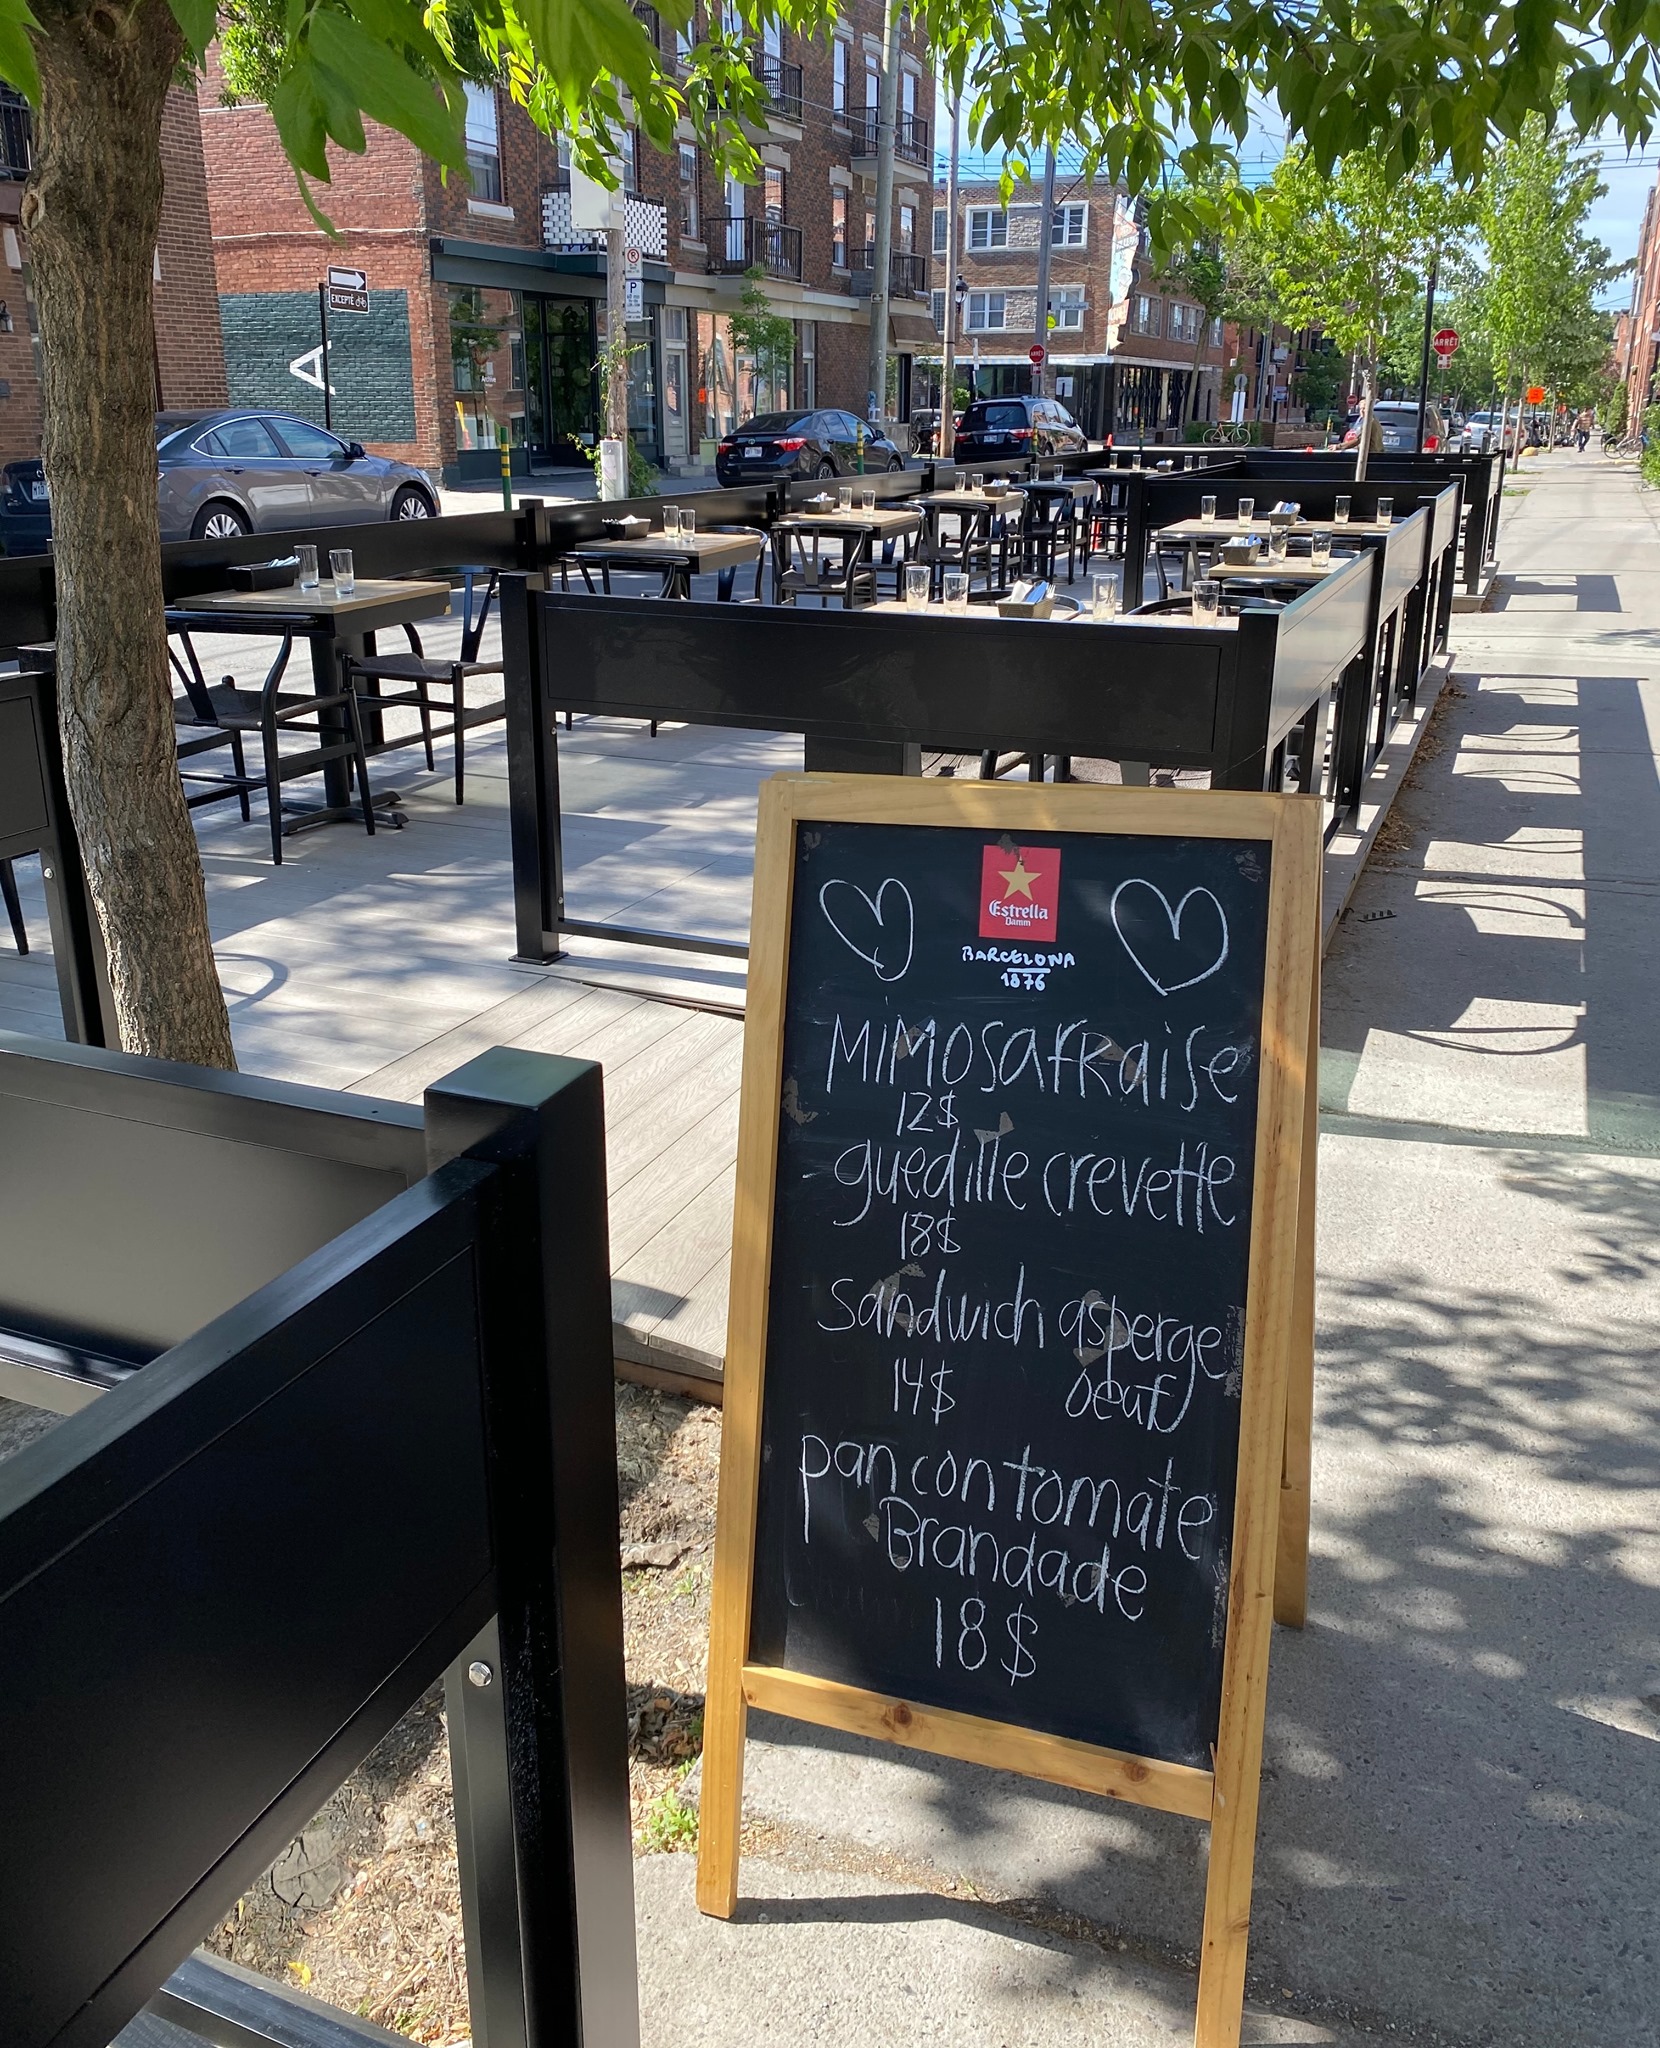 EXCEPTÉ
P
Archive
ARRÊT
ARRÊT
A
Estrella
Damm
BARCELONA
1876
MiMOSA fRaise
12$
guedille crevette
18$
sandwich asperge
14$ oeuf
pan con tomate
Brandade
18$